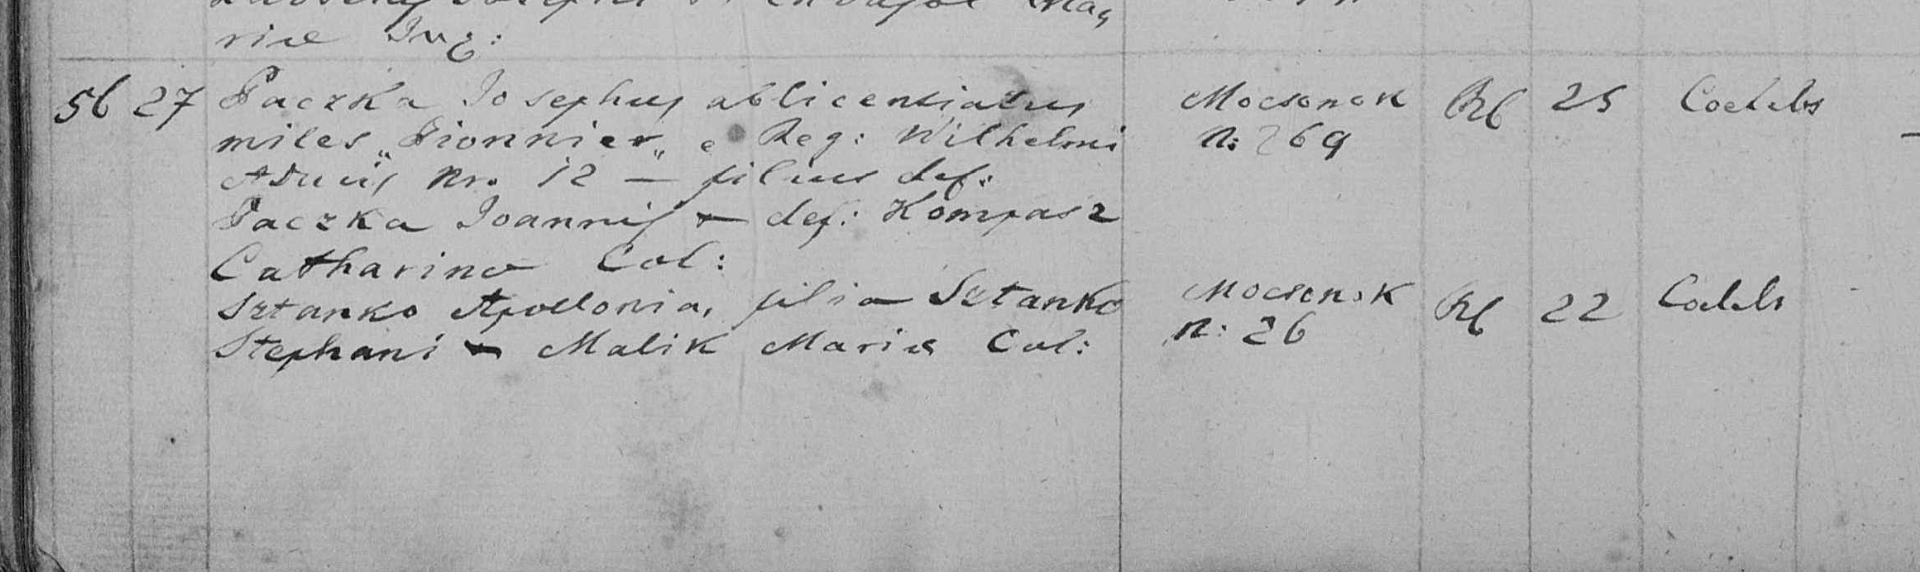 riae Inq:
56 27 Paczka Josephus ablicentiatus Mocsonok RC 25 Coelebs
miles „Pionnier„ e Reg: Wilhelmi n: 269
ADucis Nr. 12 — filius def:
Paczka Joannis & def: Kompasz
Catharinae Col:
Sztanko Apollonia, filia Sztanko Mocsonok RC 22 Coelebs
Stephani & Malik Mariae Col: n: 26